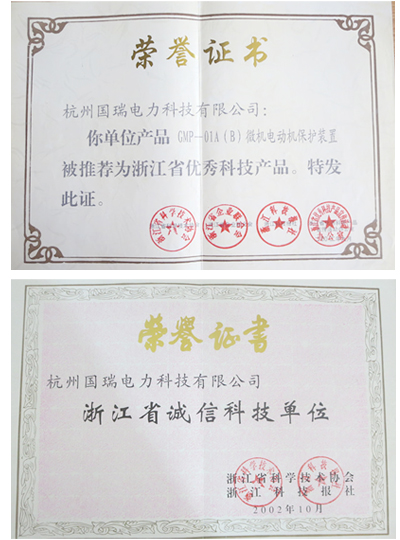 荣誉证书
杭州国瑞电力科技有限公司：
你单位产品 GMP--01A(B)微机电动机保护装置
被推荐为浙江省优秀科技产品。特发
此证。
荣誉证書
杭州国瑞电力科技有限公司
浙江省诚信科技单位
浙江省科学技术协会
浙江科技报社
2002年10月